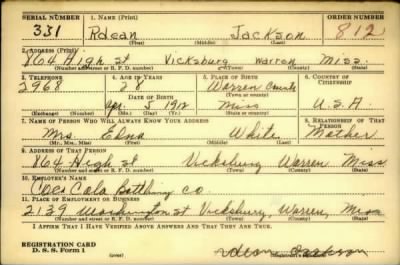 SERIAL NUMBER 1. NAME (Print) ORDER NUMBER
331 Rdean Jackson 812
(First) (Middle) (Last)
2. ADDRESS (Print)
864 High St Vicksburg Warren Miss.
(Number and street or R. F. D. number) (Town) (County) (State)
3. TELEPHONE 4. AGE IN YEARS 5. PLACE OF BIRTH 6. COUNTRY OF CITIZENSHIP
2968 28 Warren County
DATE OF BIRTH
Apr. 5 1912 Miss U.S.A
(Exchange) (Number) (Mo.) (Day) (Yr.) (State or country)
7. NAME OF PERSON WHO WILL ALWAYS KNOW YOUR ADDRESS 8. RELATIONSHIP OF THAT PERSON
Mrs. Edna White Mother
(Mr., Mrs., Miss) (First) (Middle) (Last)
9. ADDRESS OF THAT PERSON
864 High St Vicksburg Warren Miss
(Number and street or R. F. D. number) (Town) (County) (State)
10. EMPLOYER'S NAME
Coca Cola Bottling Co.
11. PLACE OF EMPLOYMENT OR BUSINESS
2139 Washington St Vicksburg, Warren, Miss
(Number and street or R. F. D. number) (Town) (County) (State)
I AFFIRM THAT I HAVE VERIFIED ABOVE ANSWERS AND THAT THEY ARE TRUE.
REGISTRATION CARD
D. S. S. Form 1
rdean Jackson